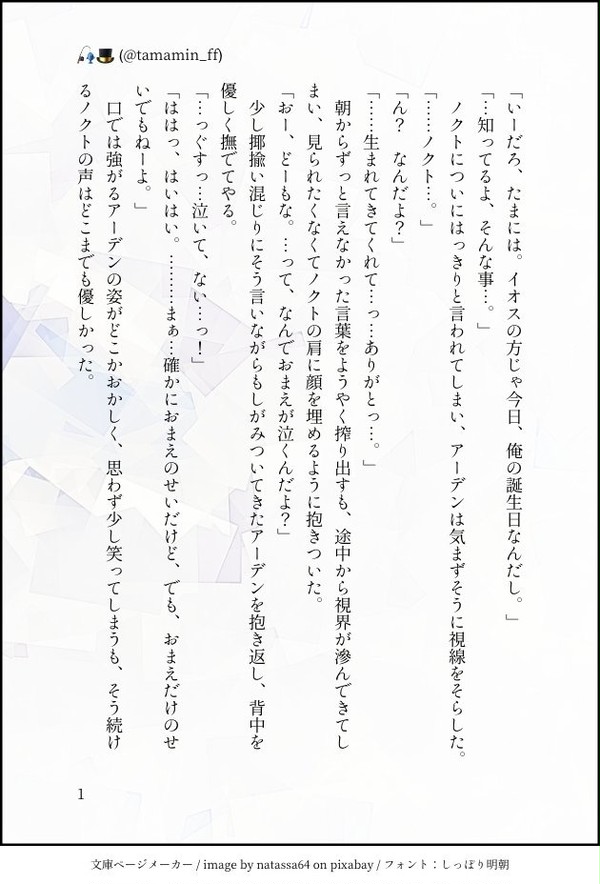 🎣🎩 (@tamamin_ff)
「いーだろ、たまには。イオスの方じゃ今日、俺の誕生日なんだし。」
「…知ってるよ、そんな事…。」
ノクトについにはっきりと言われてしまい、アーデンは気まずそうに視線をそらした。
「……ノクト…。」
「ん？　なんだよ？」
「……生まれてきてくれて…っ…ありがとっ…。」
朝からずっと言えなかった言葉をようやく搾り出すも、途中から視界が滲んできてし
まい、見られたくなくてノクトの肩に顔を埋めるように抱きついた。
「おー、どーもな。…って、なんでおまえが泣くんだよ？」
少し揶揄い混じりにそう言いながらもしがみついてきたアーデンを抱き返し、背中を
優しく撫でてやる。
「…っぐすっ…泣いて、ない…っ！」
「ははっ、はいはい。………まぁ…確かにおまえのせいだけど、でも、おまえだけのせ
いでもねーよ。」
口では強がるアーデンの姿がどこかおかしく、思わず少し笑ってしまうも、そう続け
るノクトの声はどこまでも優しかった。
1
文庫ページメーカー / image by natassa64 on pixabay / フォント：しっぽり明朝